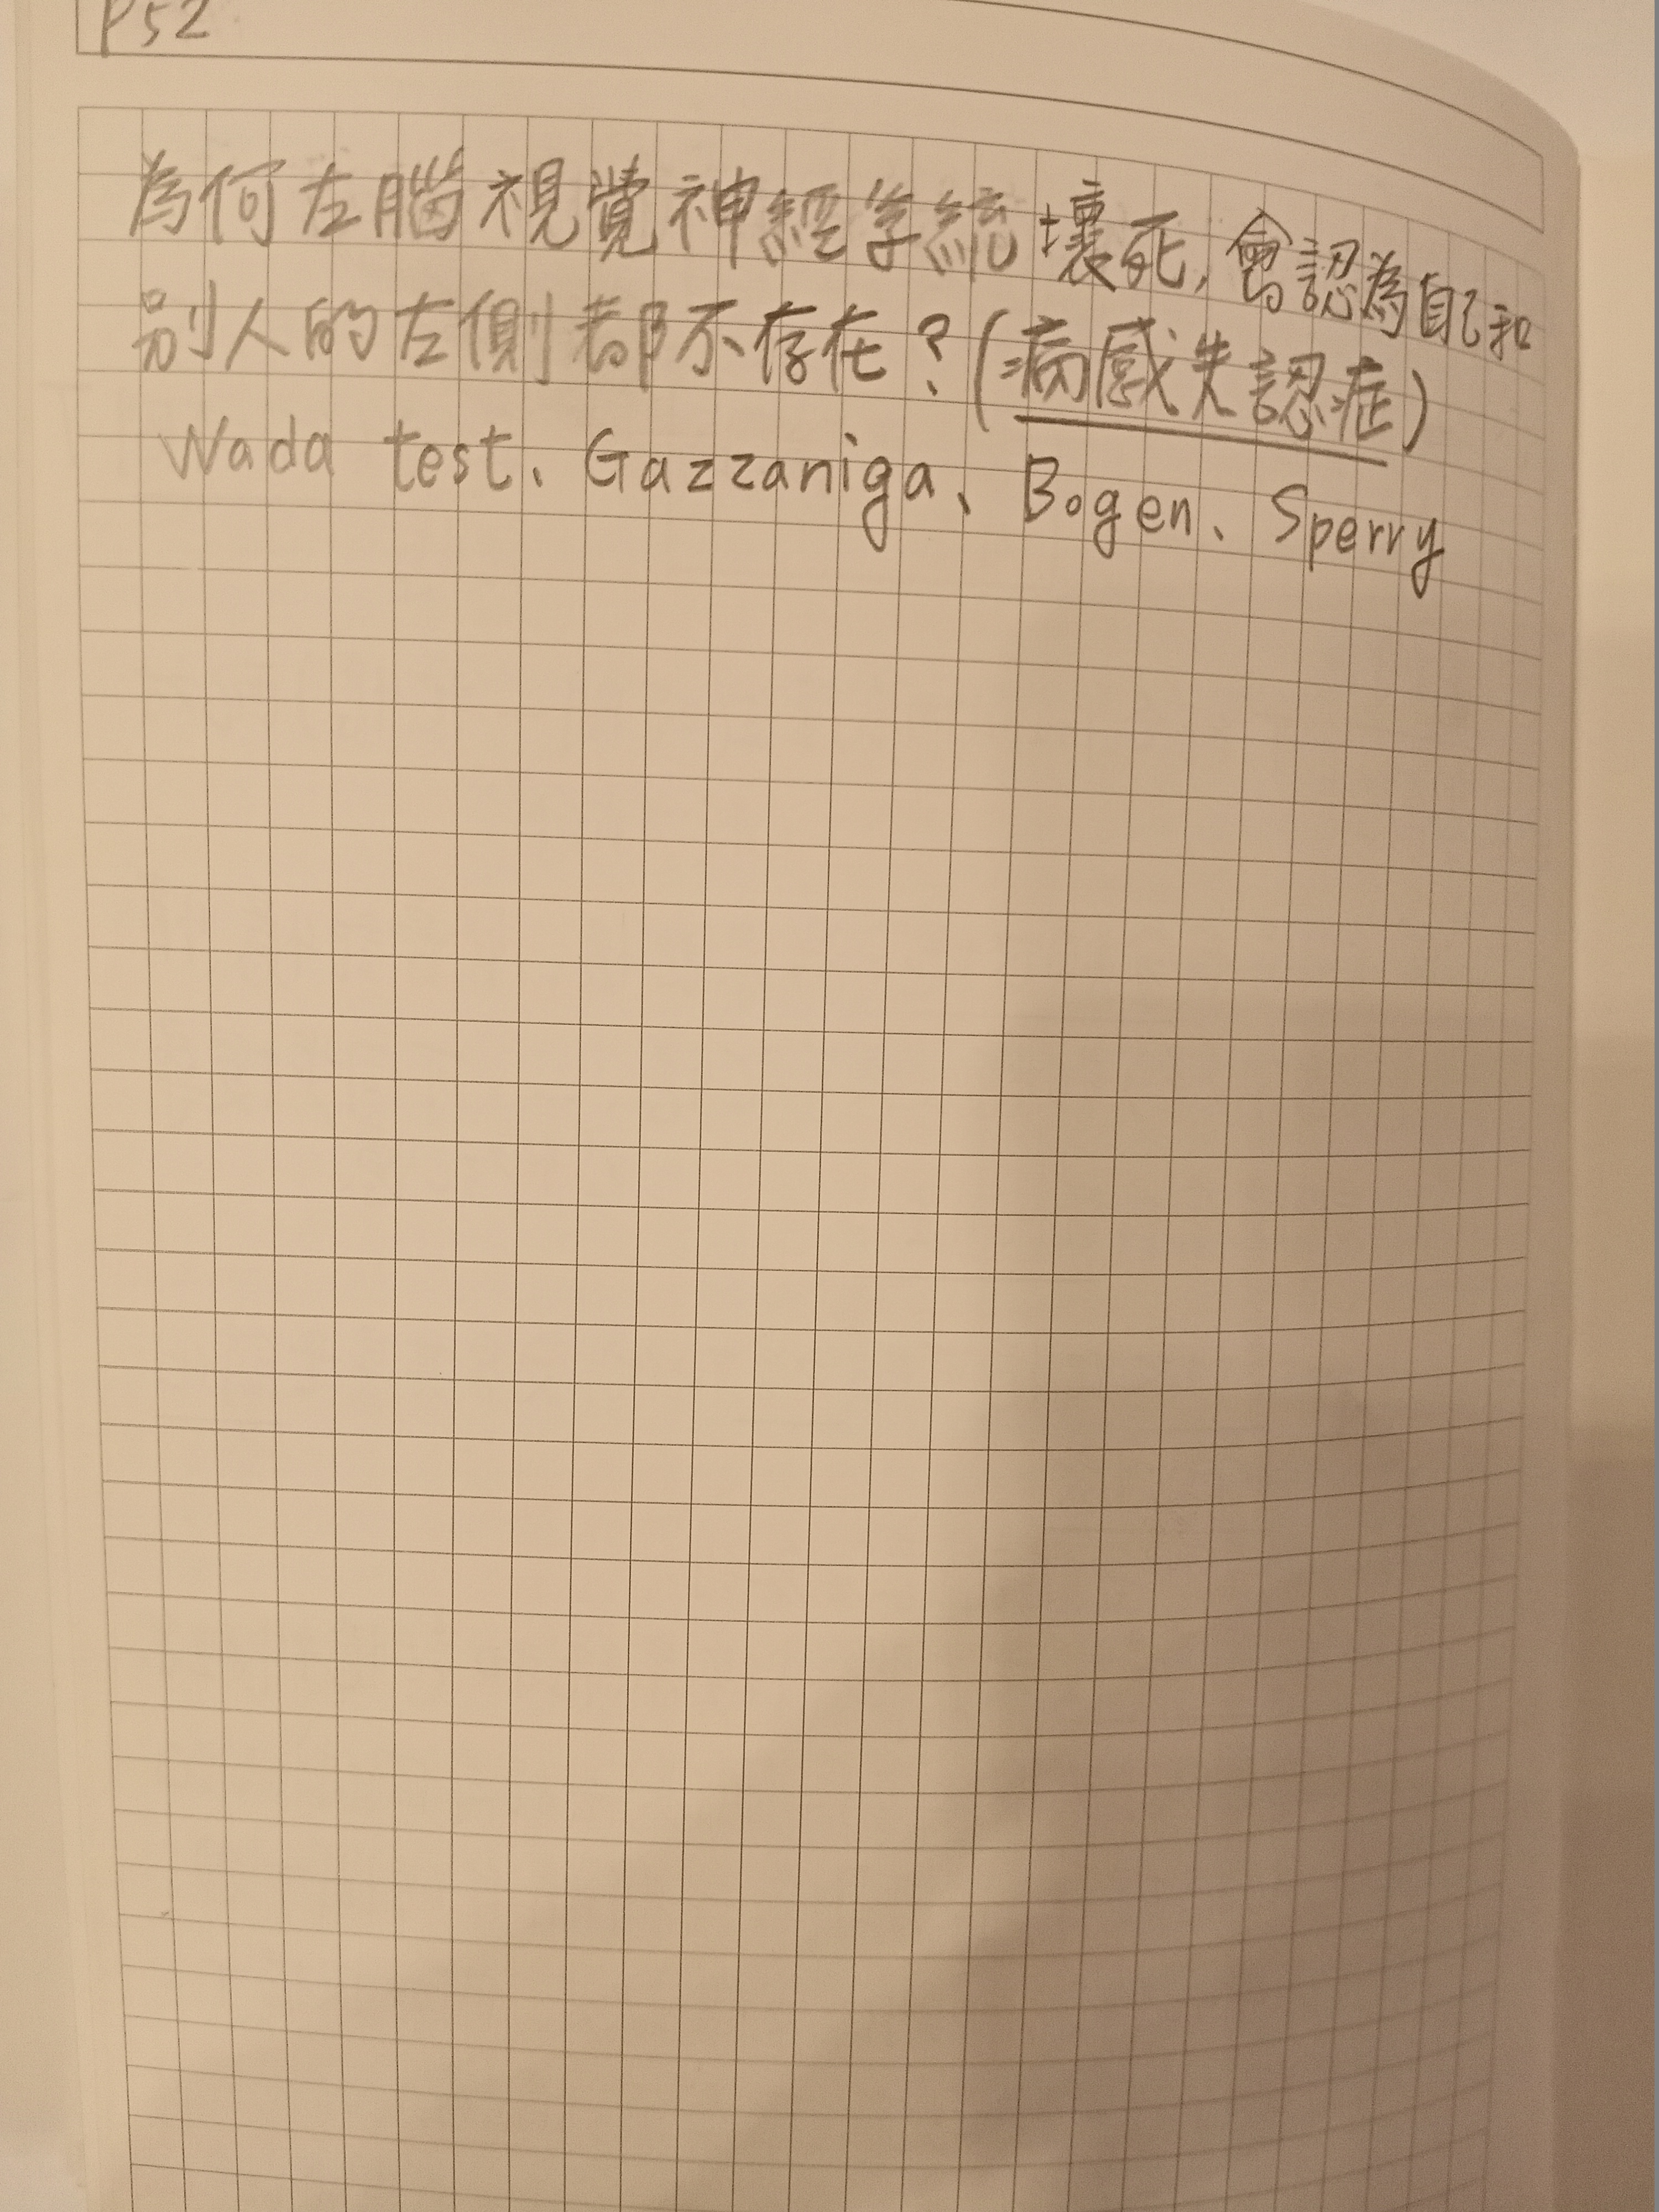 P52
為何左腦視覺神經系統壞死,會認為自己和
別人的左側都不存在?(病感失認症)
Wada test、Gazzaniga、Bogen、Sperry